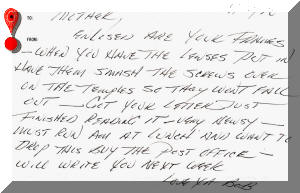 TO:
MOTHER,
FROM:
ENCLOSED ARE YOUR FRAMES
— WHEN YOU HAVE THE LENSES PUT IN
HAVE THEM SMASH THE SCREWS OVER
ON THE TEMPLES SO THEY WON'T FALL
OUT — GOT YOUR LETTER JUST
FINISHED READING IT — VERY NEWSY —
MUST RUN AM AT LUNCH AND WANT TO
DROP THIS BUY THE POST OFFICE —
WILL WRITE YOU NEXT WEEK
LOVE YA BOB